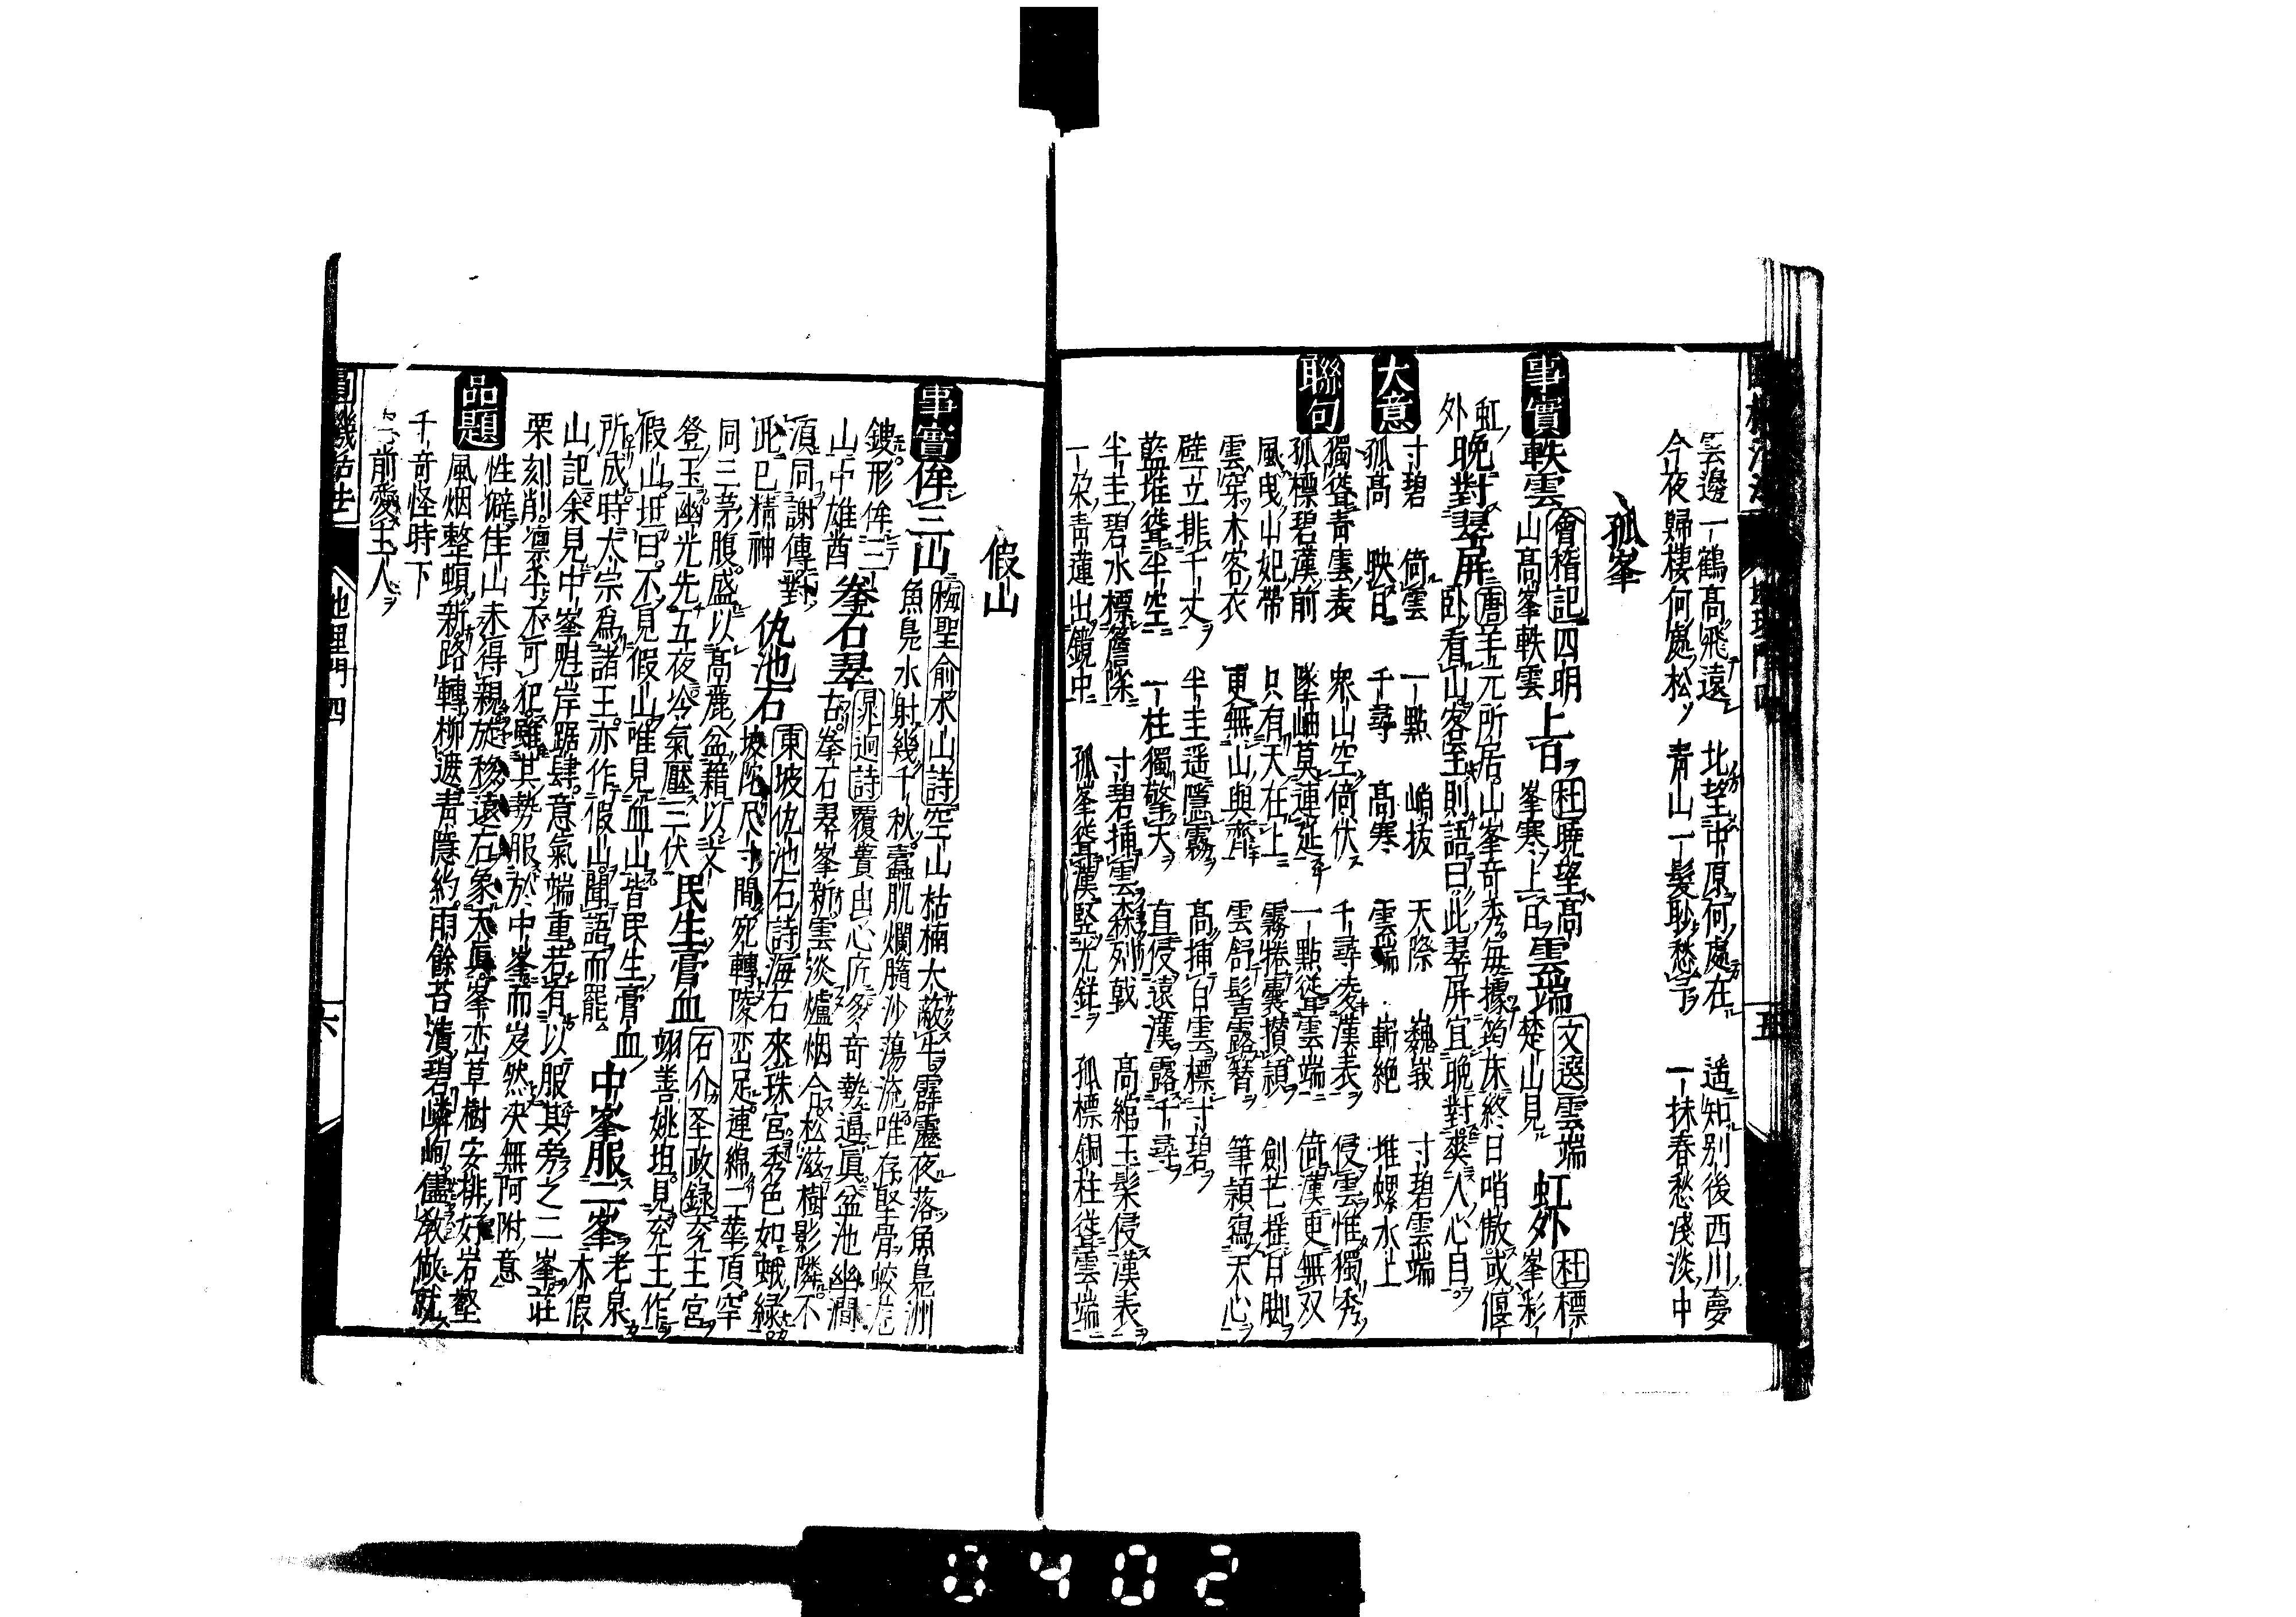 雲邊一鶴高飛遠　北望中原何處在　遥知别後西川夢
今夜歸樓何處松　青山一髮聊愁予　一抹春愁淺淡中
孤峯
事實 軼雲 會稽記 四明山高峯軼雲 上百 杜曉望高峯寒上日 雲端 文選雲端楚山見 虹外 杜標峯彩虹外
晚對翠屏 唐羊元所居山峯奇秀每據筠床終日哨傲或偃卧看山客至則語曰此翠屏宜晚對爽人心目
大意 寸碧　倚雲　一點　峭拔　天際　巍峩　寸碧雲端
孤高　映日　千尋　高寒　雲端　嶄絶　堆螺水上
聯句 獨聳青雲表　衆山空倚伏　千尋凌漢表　侵雲惟獨秀
孤標碧漢前　墜岫莫連延　一點聳雲端　倚漢更無双
風曳山妃帶　只有天在上　霧捲囊攅頴　劍芒揺日脚
雲穿木客衣　更無山與齊　雲舒髻露簪　筆頴寫天心
壁立排千丈　半圭遥隱霧　高挿白雲標寸碧
藍堆聳半空　一柱獨擎天　直侵遠漢露千尋
半圭碧水標簷除　寸碧挿雲森列戟　高綰玉髻侵漢表
一朶青蓮出鏡中　孤峯聳漢竪光鋩　孤標銅柱聳雲端
假山
事實 侔三山 梅聖俞水山詩空山枯楠大蔽牛霹靂夜落魚鳬洲
魚鳬水射幾千秋蠹肌爛髓沙蕩流唯存堅骨蛟龍
鏤形侔三山中雄酋 拳石翠 晁迥詩覆簣由心匠多奇勢逼眞盆池幽澗
古峯石翠峯新雲淡爐烟合松滋樹影隣不
湏同謝傅對此已精神 仇池石 東坡仇池石詩海石來珠宮秀色如蛾緑
坡陀尺寸間宛轉陵巒足連綿二華頂空
同三茅腹盛以高麗盆藉以文
登玉幽光先五夜冷氣壓三伏 民生膏血 石介圣政録兖王宮
翊善姚坦見兖王作
假山坦曰不見假山唯見血山皆民生膏血
所成時太宗爲諸王亦作假山聞語而罷 中峯服二峯 老泉木假
山記余見中峯魁岸踞肆意氣端重若有以服其旁之二峯莊
栗刻削凛乎不可犯雖其勢服於中峯而岌然决無阿附意
品題 性癖隹山未得親旋移遠石象天眞峯巒草樹安排好岩壑
風烟整頓新路轉柳遮青隱約雨餘苔漬碧嶙峋儘教做就
千竒怪時下
前愛主人
圓機活法　地理門四　六
五
0402